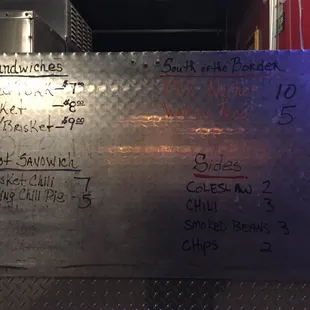 andwiches
South of the Border
PORK - $7.00
10
ket - $8.00
5
/Brisket - $9.00
ot Sandwich
Sides
sket Chili 7
COLESLAW 2
ing Chili Pie - 5
CHILI 3
SMOKED BEANS 3
CHIPS 2